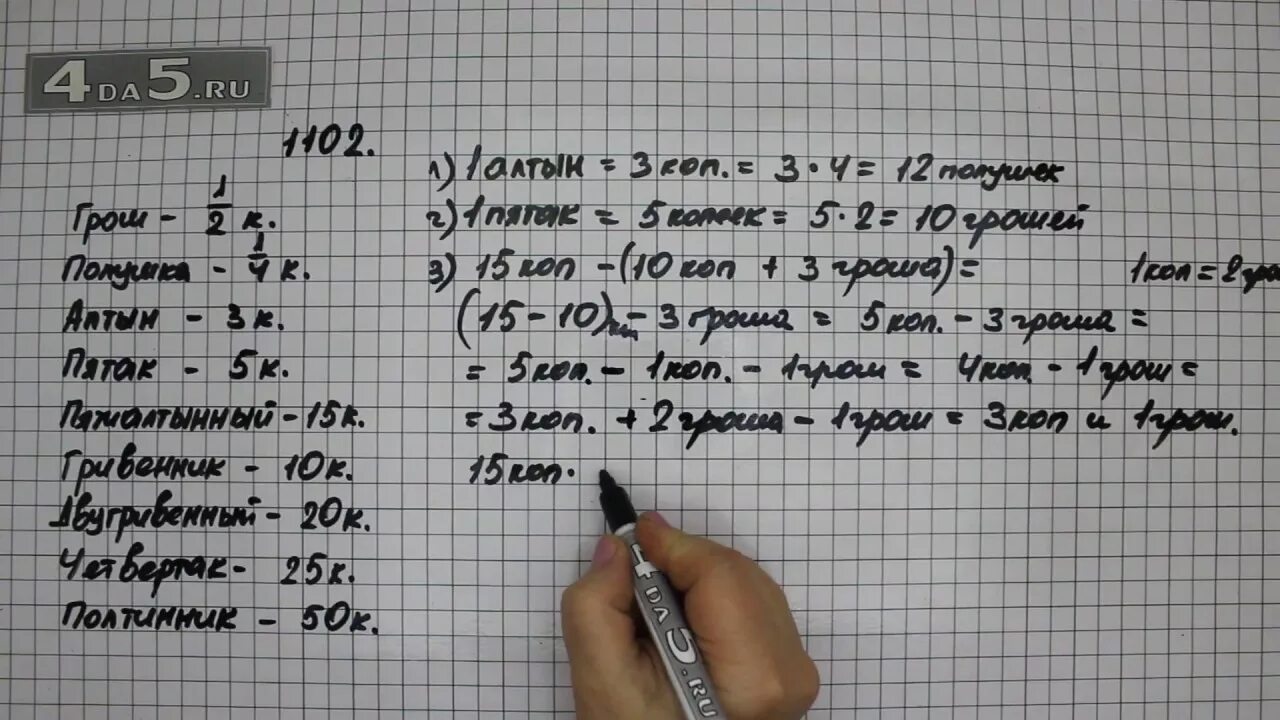 4DA5.RU
1102.
Грош - 1/2 к.
Полушка - 1/4 к.
Алтын - 3к.
Пятак - 5к.
Пятиалтынный - 15к.
Гривенник - 10к.
Двугривенный - 20к.
Четвертак - 25к.
Полтинник - 50к.
1) 1 алтын = 3 коп. = 3 · 4 = 12 полушек
2) 1 пятак = 5 копеек = 5 · 2 = 10 грошей
3) 15 коп - (10 коп + 3 гроша) =
1 коп = 2 гро
(15 - 10) - 3 гроша = 5 коп. - 3 гроша =
= 5 коп. - 1 коп. - 1 грош = 4 коп - 1 грош =
= 3 коп. + 2 гроша - 1 грош = 3 коп и 1 грош.
15 коп.
4DA5.RU